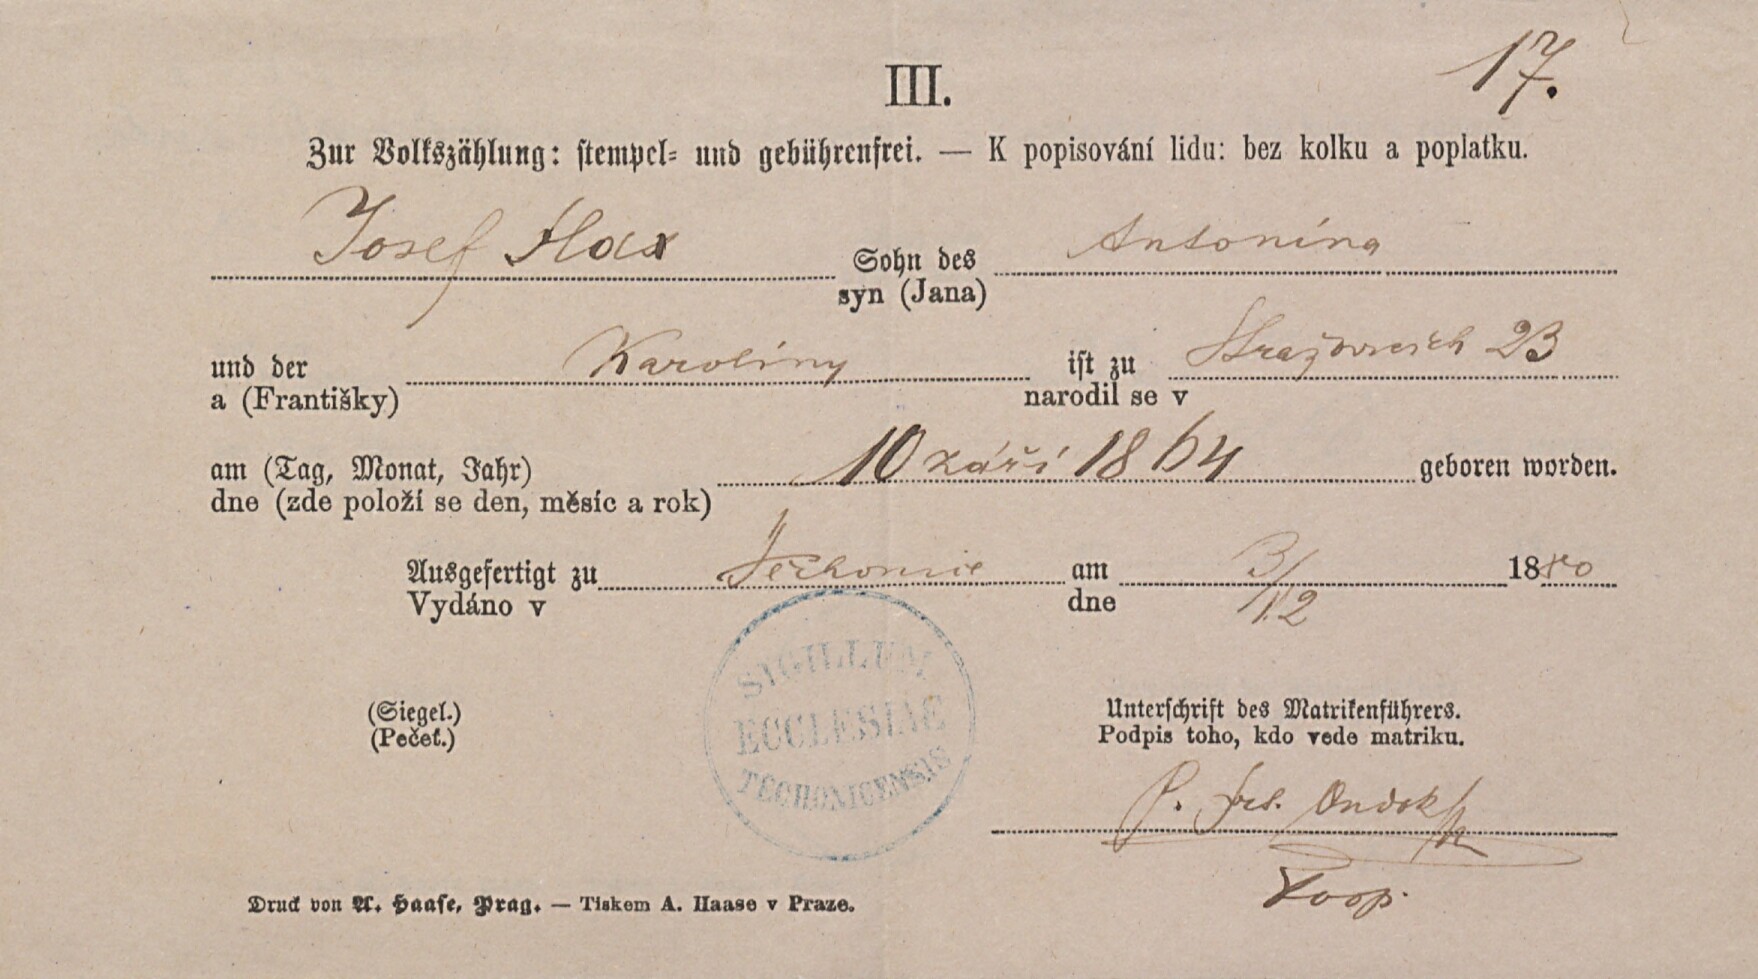 17.
III.
Zur Volkszählung: stempel- und gebührenfrei. — K popisování lidu: bez kolku a poplatku.
Josef Sohn des Antonína
syn (Jana)
und der Karolíny ist zu 23
a (Františky) narodil se v
am (Tag, Monat, Jahr) 10 září 1864 geboren worden.
dne (zde položí se den, měsíc a rok)
Ausgefertigt zu Těchonic am 3/12 1880
Vydáno v dne
SIGILLUM
ECCLESIAE
TECHONICENSIS
(Siegel.)
(Pečeť.)
Unterschrift des Matrikenführers.
Podpis toho, kdo vede matriku.
P. Ondok
Koop.
Druck von A. Haase, Prag. — Tiskem A. Haase v Praze.